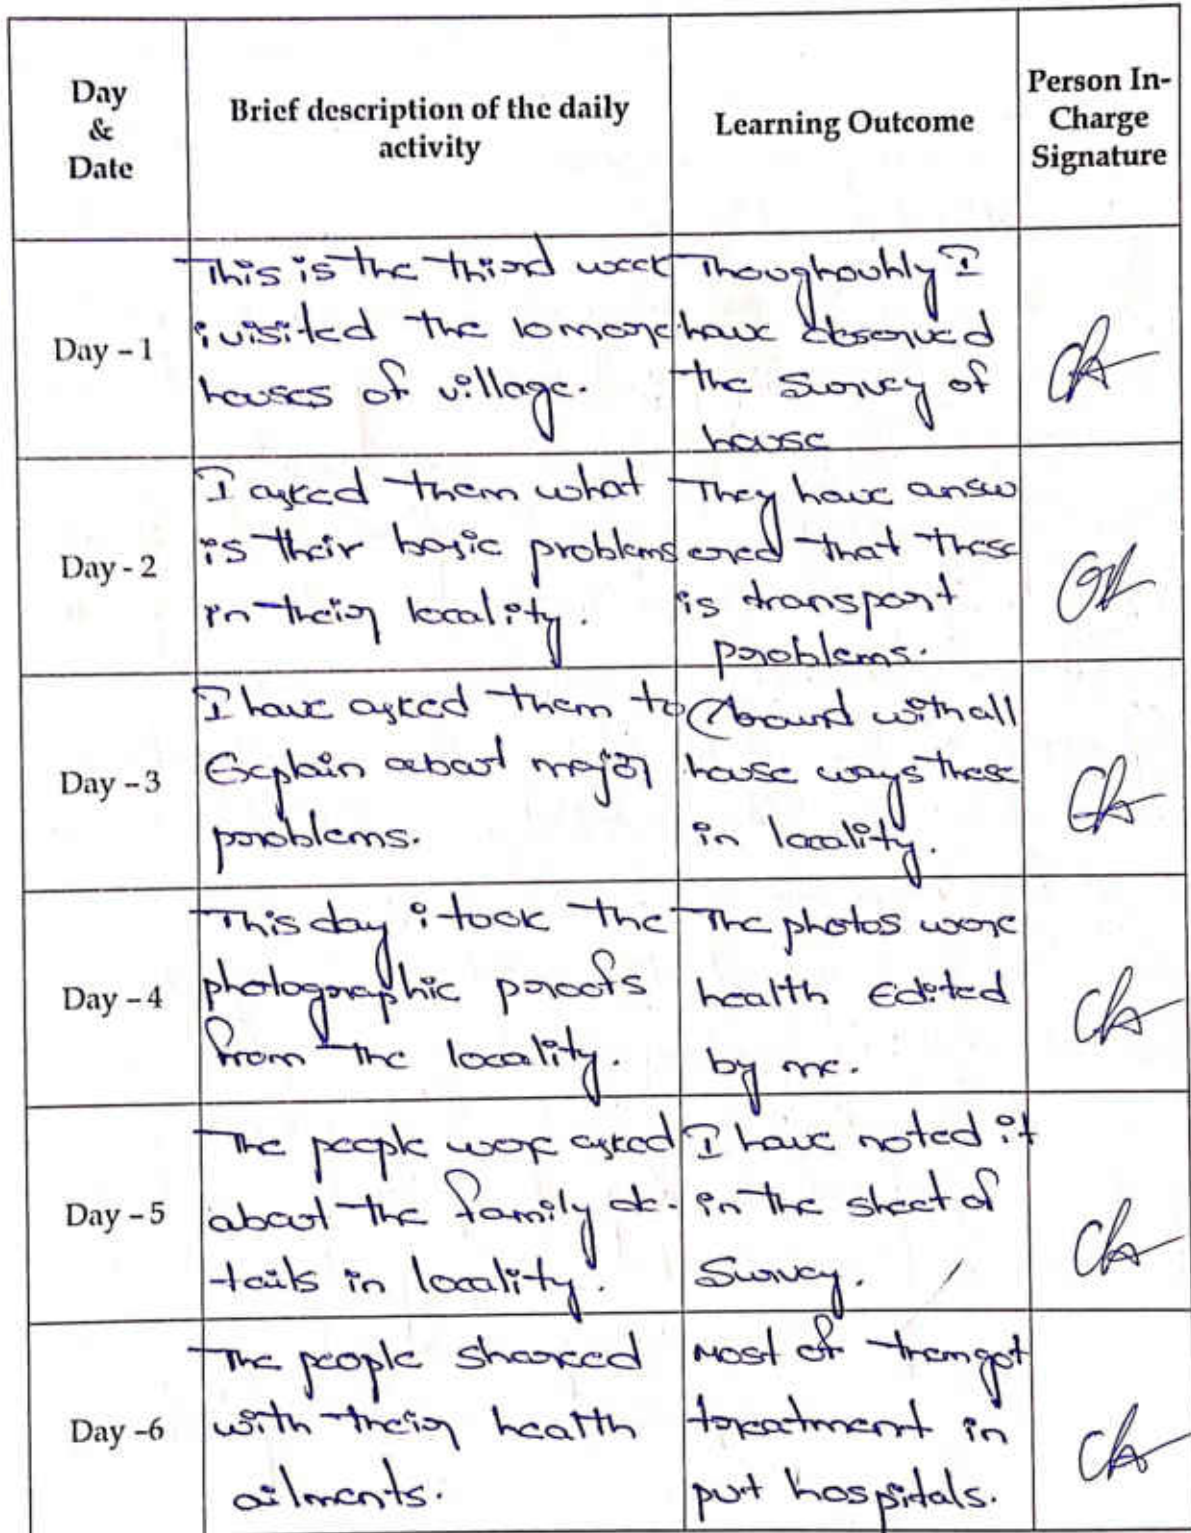 Day
&
Date
Brief description of the daily
activity
Learning Outcome
Person In-
Charge
Signature
Day - 1
This is the third week
i visited the 10 more
houses of village.
Thoughouhly I
have observed
the Survey of
house
Day - 2
I asked them what
is their basic problems
in their locality.
They have answ
ered that these
is transport
problems.
Day - 3
I have asked them to
Explain about major
problems.
around with all
house ways these
in locality.
Day - 4
This day i took the
photographic proofs
from the locality.
The photos were
health Edited
by me.
Day - 5
The people were asked
about the family de-
tails in locality.
I have noted it
in the sheet of
Survey.
Day -6
The people shareed
with their health
ailments.
Most of them got
treatment in
pvt hospitals.